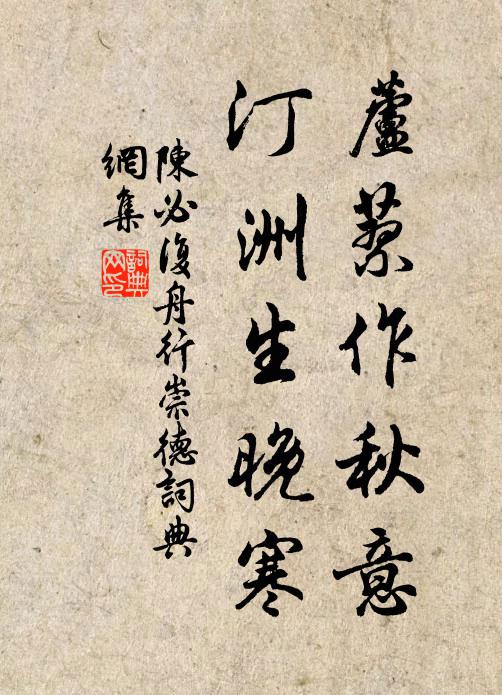 蘆作秋意
汀洲生晚寒
陳必復舟行崇德詞典
網集
詞典
网印